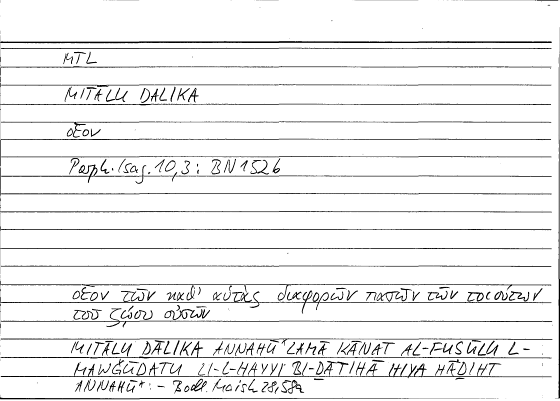 MTL
MITĀLU DALIKA
οἷον
Porph. Isag. 10,3: BN 152b
οἷον τῶν καθ' αὑτὰς διαφορῶν πασῶν τῶν τοιούτων
τοῦ ζῴου οὐσῶν
MITĀLU DĀLIKA ANNAHŪ* LAMĀ KĀNAT AL-FUṢŪLU L-
MAWǦŪDATU LI-L-HAYYI BI-DATIHĀ HIYA HĀDIHT
ANNAHŪ* : - Bodl. Marsh 28,58a